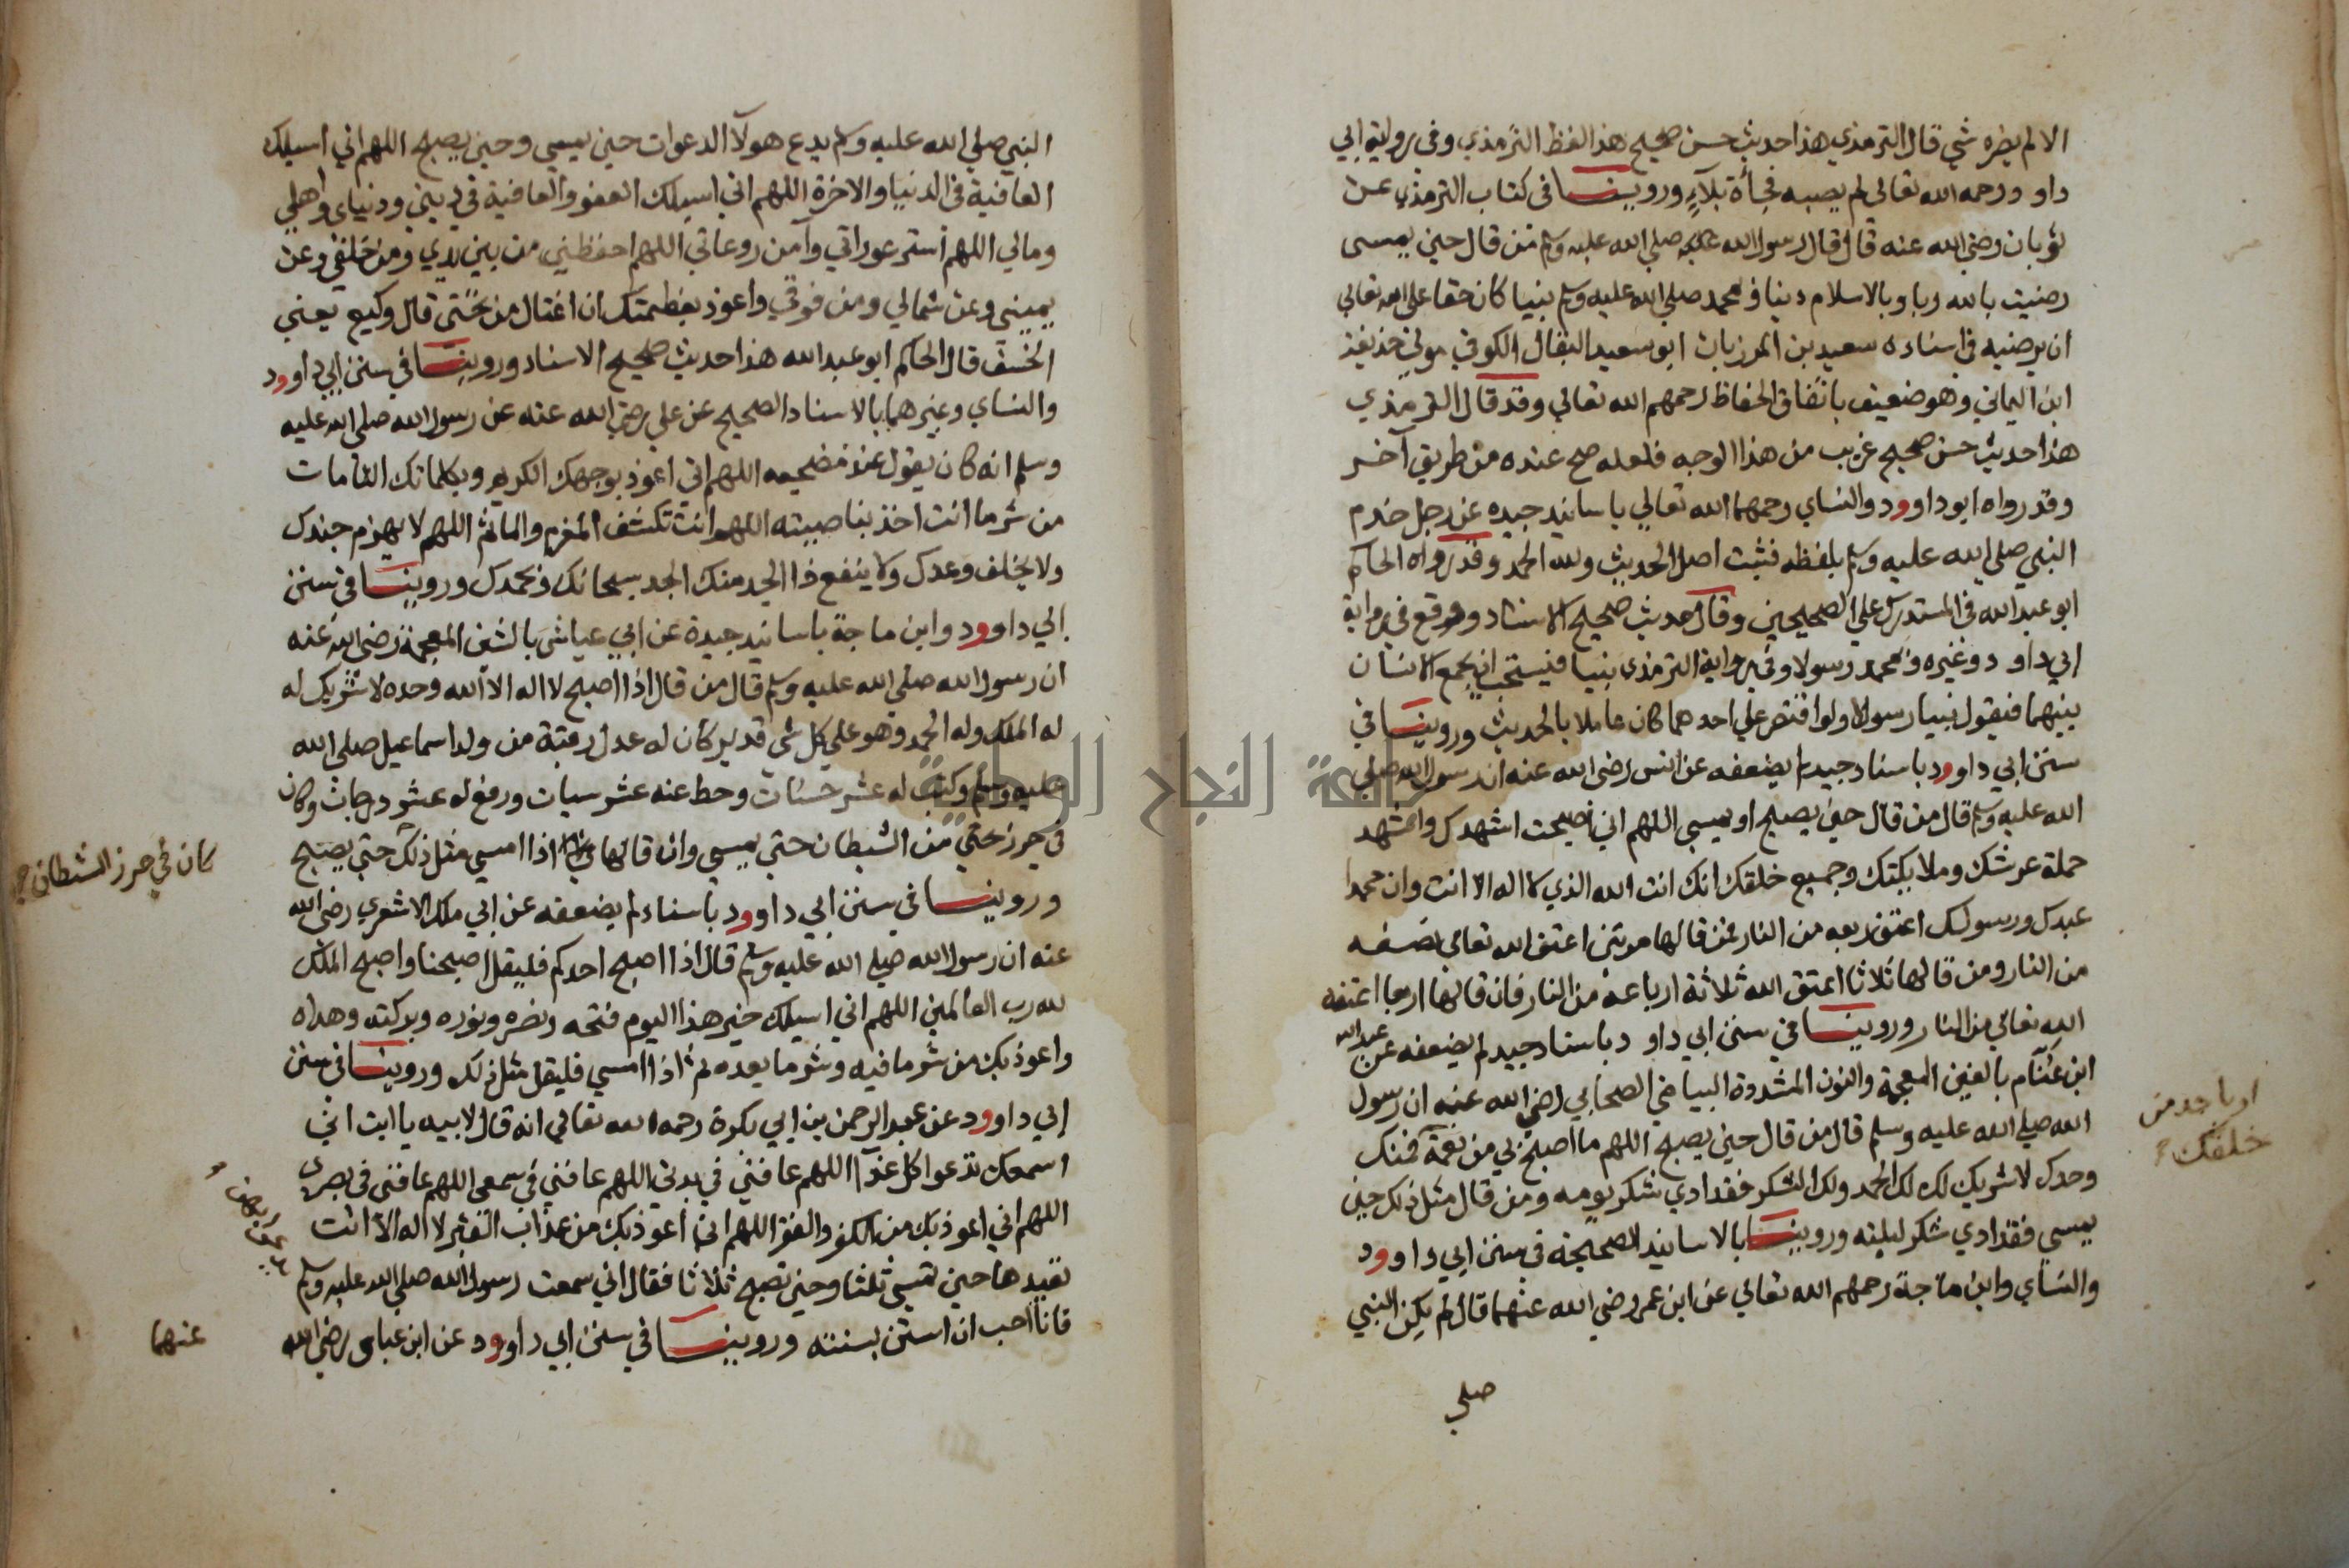 الا لم يضره شي قال الترمذي هذا حديث حسن صحيح هذا لفظ الترمذي وفي رواية ابي
داوود رحمه الله تعالى لم يصبه فجأة بلآءٍ وروينا في كتاب الترمذي عن
ثوبان رضي الله عنه قال قال رسول الله صلي الله عليه وسلم من قال حين يمسى
رضيت بالله ربا وبالاسلام دينا وبمحمد صلي الله عليه وسلم نبيا كان حقا على الله تعالى
ان يرضيه في اسناده سعيد بن المرزبان ابو سعيد البقال الكوفي مولى حذيفة
ابن اليماني وهو ضعيف باتفاق الحفاظ رحمهم الله تعالي وقد قال الترمذي
هذا حديث حسن صحيح غريب من هذا الوجه فلعله صح عنده من طريق آخر
وقد رواه ابو داوود والنساي رحمهما الله تعالي باسانيد جيده عن رجل خدم
النبي صلي الله عليه وسلم بلفظه فثبت اصل الحديث ولله الحمد وقد رواه الحاكم
ابو عبد الله في المستدرك علي الصحيحين وقال حديث صحيح الاسناد ووقع في رواية
ابي داود وغيره وبمحمد رسولا وفي رواية الترمذي نبيا فيستحب ان يجمع الانسان
بينهما فيقول نبيا رسولا ولو اقتصر علي احدهما كان عاملا بالحديث وروينا في
سنن ابي داوود باسناد جيد لم يضعفه عن انس رضي الله عنه ان رسول الله صلي
الله عليه وسلم قال من قال حين يصبح او يمسي اللهم اني اصبحت اشهدك واشهد
حملة عرشك وملايكتك وجميع خلقك انك انت الله الذي لا اله الا انت وان محمدا
عبدك ورسولك اعتق ربعه من النار فمن قالها مرتين اعتق الله تعالي نصفه
من النار ومن قالها ثلاثا اعتق الله ثلاثة ارباعه من النار فان قالها اربعا اعتقه
الله تعالي من النار وروينا في سنن ابي داود باسناد جيد لم يضعفه عن عبد الله
ابن غنّام بالغين المعجمة والنون المشددة البياضي الصحابي رضي الله عنه ان رسول
الله صلي الله عليه وسلم قال من قال حين يصبح اللهم ما اصبح بي من نعمة فمنك
او باحد من
خلقك
وحدك لا شريك لك لك الحمد ولك الشكر فقد ادي شكر يومه ومن قال مثل ذلك حين
يمسي فقد ادي شكر ليلته وروينا بالاسانيد الصحيحة في سنن ابي داوود
والنساي وابن ماجة رحمهم الله تعالي عن ابن عمر رضي الله عنهما قال لم يكن النبي
صلي
النبي صلي الله عليه وسلم يدع هولآ الدعوات حين يمسي وحين يصبح اللهم اني اسيلك
العافية في الدنيا والاخرة اللهم اني اسيلك العفو والعافية في ديني ودنياى واهلي
ومالي اللهم استر عوراتي وآمن روعاتي اللهم احفظني من بين يدي ومن خلفي وعن
يميني وعن شمالي ومن فوقي واعوذ بعظمتك ان اغتال من تحتي قال وكيع يعني
الخسف قال الحاكم ابو عبد الله هذا حديث صحيح الاسناد وروينا في سنن ابي داوود
والنساي وغيرهما بالاسناد الصحيح عن علي رضي الله عنه عن رسول الله صلي الله عليه
وسلم انه كان يقول عند مضجعه اللهم اني اعوذ بوجهك الكريم وبكلماتك التامات
من شر ما انت اخذ بناصيته اللهم انت تكشف المغرم والماثم اللهم لا يهزم جندك
ولا يخلف وعدك ولا ينفع ذا الجد منك الجد سبحانك وبحمدك وروينا في سنن
ابي داوود وابن ماجة باسانيد جيدة عن ابي عياش بالشين المعجمة رضي الله عنه
ان رسول الله صلي الله عليه وسلم قال من قال اذا اصبح لا اله الا الله وحده لا شريك له
له الملك وله الحمد وهو علي كل شي قدير كان له عدل رقبة من ولد اسماعيل صلي الله
عليه وسلم وكتب له عشر حسنات وحط عنه عشر سيات ورفع له عشر درجات وكان
في حرز حتي من الشيطان حتي يمسي وان قالها اذا امسي مثل ذلك حتي يصبح
كان في حرز الشيطان
وروينا في سنن ابي داوود باسناد لم يضعفه عن ابي ملك الاشعري رضي الله
عنه ان رسول الله صلي الله عليه وسلم قال اذا اصبح احدكم فليقل اصبحنا واصبح الملك
لله رب العالمين اللهم اني اسيلك خير هذا اليوم فتحه ونصره ونوره وبركته وهداه
واعوذ بك من شر ما فيه وشر ما بعده ثم اذا امسي فليقل مثل ذلك وروينا في سنن
ابي داوود عن عبد الرحمن بن ابي بكرة رحمه الله تعالي انه قال لابيه يا ابت اني
اسمعك تدعوا كل غدآ اللهم عافني في بدني اللهم عافني في سمعي اللهم عافني في بصرى
اللهم اني اعوذ بك من الكفر والفقر اللهم اني اعوذ بك من عذاب القبر لا اله الا انت
تعيدها حين تمسي ثلثا وحين تصبح ثلاثا فقال اني سمعت رسول الله صلي الله عليه وسلم
فانا احب ان استن بسنته وروينا في سنن ابي داوود عن ابن عباس رضي الله
عنهما
جامعة النجاح الوطنية